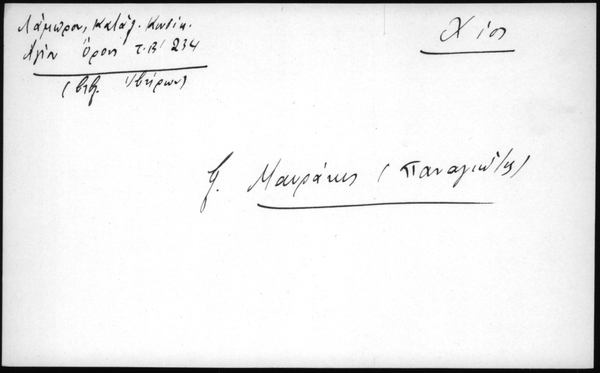 Λάμπρου, Καταλ. Κωδίκ.
Αγίου Όρους τ. Β' 234
(Βιβ. Ιβήρων)
Χίος
Μαυράκης (Παναγιώτης)